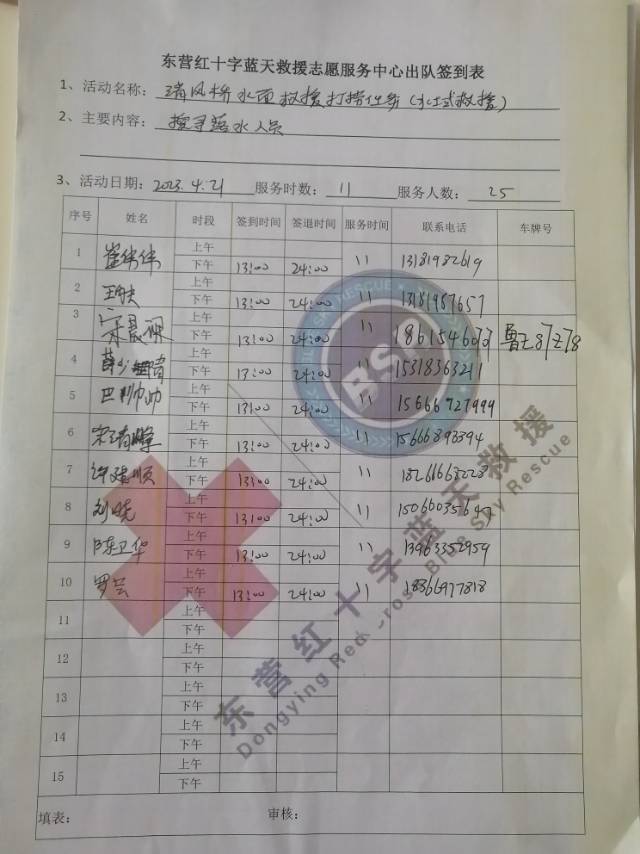 东营红十字蓝天救援志愿服务中心出队签到表
1、活动名称: 清风桥水面救援打捞任务(水上式救援)
2、主要内容: 搜寻落水人员
3、活动日期: 2023.4.21 服务时数: 11 服务人数: 25
序号 姓名 时段 签到时间 签退时间 服务时间 联系电话 车牌号
1 崔伟伟 上午
下午 13:00 24:00 11 13181982619
2 上午
下午 13:00 24:00 11 13181987657
3 上午
下午 13:00 24:00 11
4 上午
下午 13:00 24:00 11 15318363211
5 巴帅帅 上午
下午 13:00 24:00 11 15666927999
6 上午
下午 13:00 24:00 11 15666893394
7 许建顺 上午
下午 13:00 24:00 11 18261668228
8 刘晓 上午
下午 13:00 24:00 11
9 陈卫华 上午
下午 13:00 24:00 11 13963352959
10 罗芸 上午
下午 13:00 24:00 11 18366977818
11 上午
下午
12 上午
下午
13 上午
下午
14 上午
下午
15 上午
下午
填表: 审核:
BSR
东营红十字蓝天救援
Dongying Red Cross Blue Sky Rescue